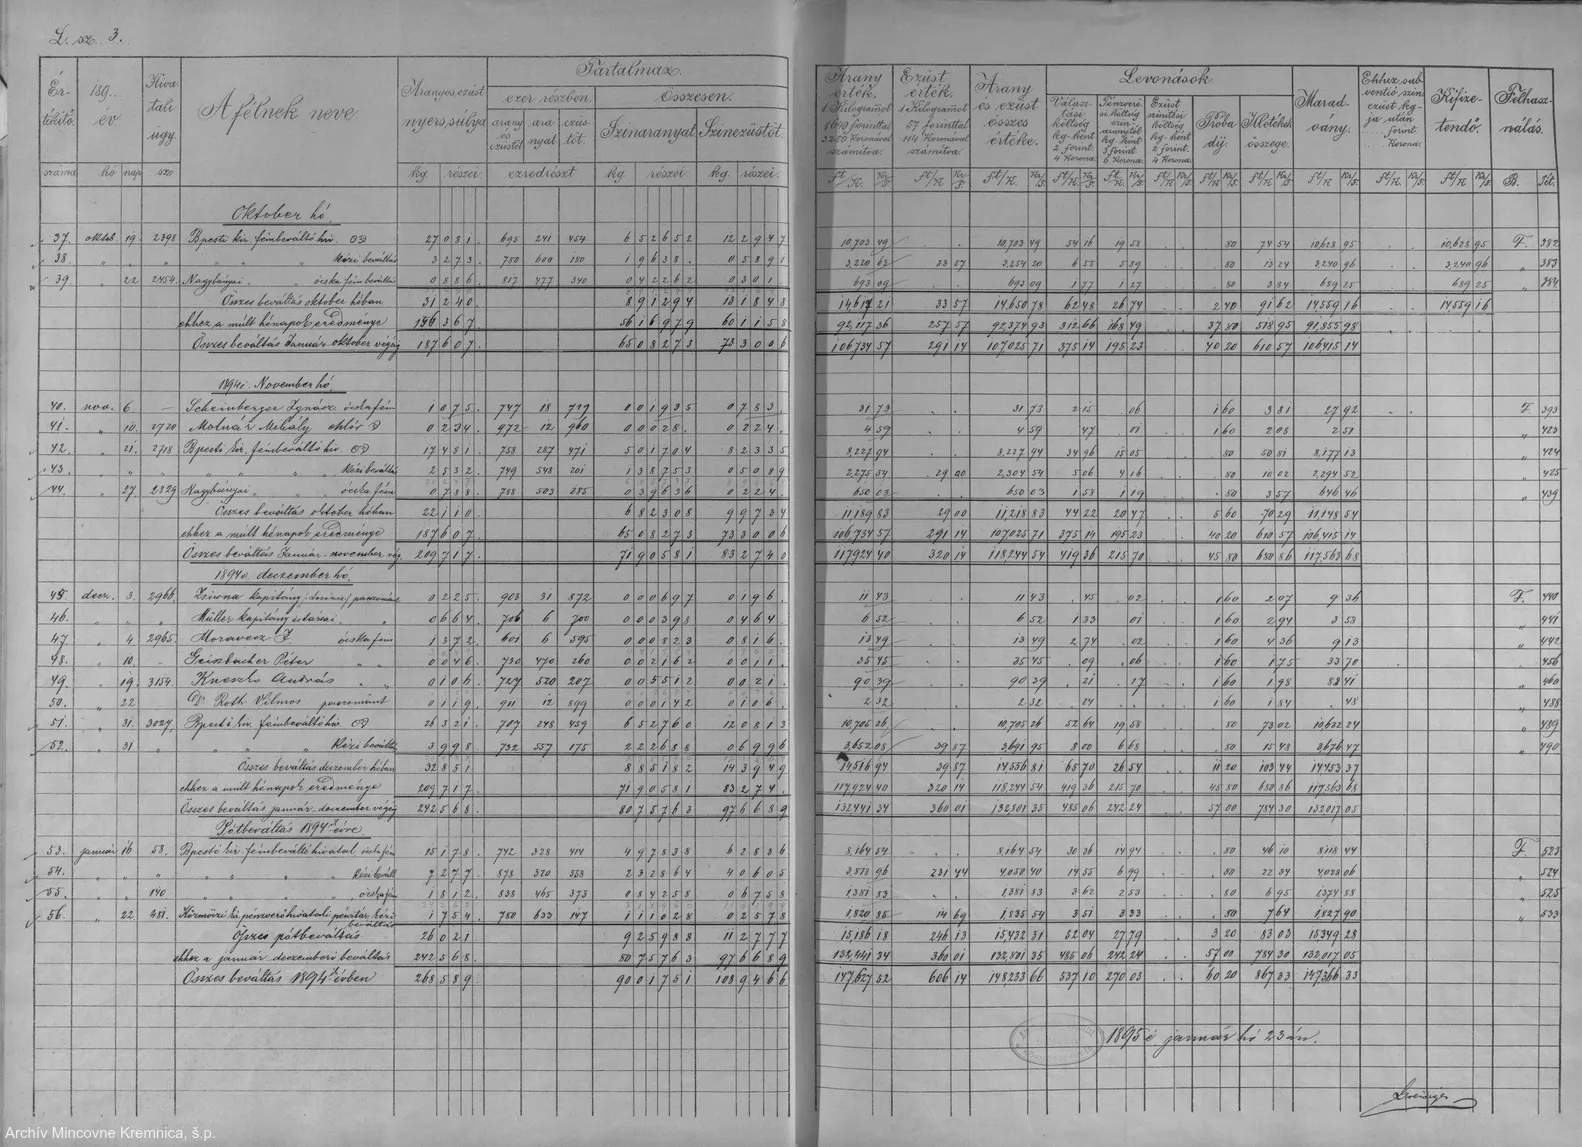 L. sz. 3.
Értesítő. száma
189.. év. hó nap
Kivatali ügy. szo
A félnek neve.
Aranyos ezüst nyers súlya. kg. részei.
Tartalmaz.
ezer részben.
arany és ezüstöt aranyat. ezüstöt.
ezredrészt
Összesen.
Színaranyat. kg. részei.
Színezüstöt. kg. részei.
Arany érték. 1 Kilogramot 1640 forinttal 3280 Koronával számítva.
Ezüst érték. 1 Kilogramot 57 forinttal 114 Koronával számítva.
Arany és ezüst összes értéke.
Levonások.
Választási költség kg-ként 2 forint. 4 Korona.
Pénzverési költség színaranytól kg-kint 3 forint 6 Korona
Ezüst színitési költség kg-kent 2 forint. 4 Korona
Próba díj.
Illetékek összege.
Maradvány.
Ehhez subventió szinezüst kg-ja után forint. Korona.
Kifizetendő.
Felhasználás.
B. Tét.
Oktober hó.
37. oktob. 19. 2398 Bpesti kir. fémbeváltó hiv. 27081. 695 241 454 6 52652 12 2947 10,703 49 10,703 49 54 16 19 58 80 74 54 10,628 95 10,628 95 F. 382
38. Kézi beváltás 3273. 780 600 180 1 9638. 0 5891 3,220 63 33 57 3,254 20 6 55 5 89 80 13 24 3,240 96 3,240 96 383
39. 22 2454. Nagybányai ócska fém beváltás 0886. 817 477 340 0 42262 0 301. 693 09 693 09 1 77 1 27 80 3 84 689 25 689 25 384
Összes beváltás oktober hóban 31240. 8 91294 13 1843 14,617 21 33 57 14,650 78 62 48 26 74 2 40 91 62 14,559 16 14,559 16
ehhez a múlt hónapok eredménye 156367 56 16979 60 1158 92,117 36 257 57 92,374 93 312 66 168 49 37 80 518 95 91,855 98
Összes beváltás Január-oktober végéig 187607. 65 08273 73 3006 106,734 57 291 14 107,025 71 375 14 195 23 40 20 610 57 106,415 14
1894é. November hó.
40. nov. 6. — Scheinberger Ignácz ócska fém 1075. 747 18 729 0 01935 0 783. 31 73 31 73 2 15 06 1 60 3 81 27 92 F. 393
41. 10. 2720 Molnár Mihály 0234. 972 12 960 0 0028. 0 224. 4 59 4 59 47 01 1 60 2 08 2 51 423
42. 21. 2718 Bpesti kir. fémbeváltó hiv. 17481. 758 287 471 5 01704 8 2335 8,227 94 8,227 94 34 96 15 05 80 50 81 8,177 13 424
43. Kézi beváltás 2532. 749 548 201 1 38753 0 5089 2,275 54 29 00 2,304 54 5 06 4 16 80 10 02 2,294 52 425
44. 27. 2829 Nagybányai ócska fém 0788. 788 503 285 0 39636 0 224. 650 03 650 03 1 58 1 19 80 3 57 646 46 439
Összes beváltás oktober hóban 22110. 6 82308 9 9734 11,189 83 29 00 11,218 83 44 22 20 47 5 60 70 29 11,148 54
ehhez a múlt hónapok eredménye 187607. 65 08273 73 3006 106,734 57 291 14 107,025 71 375 14 195 23 40 20 610 57 106,415 14
Összes beváltás Január-november vég. 209717. 71 90581 83 2740 117,924 40 320 14 118,244 54 419 36 215 70 45 80 680 86 117,563 68
1894é. deczember hó.
45. decz. 3. 2966. Zsivna kapitány 0225. 903 31 872 0 00697 0 196. 11 43 11 43 45 02 1 60 2 07 9 36 F. 440
46. Müller kapitány és társai 0664. 706 6 700 0 00398 0 464. 6 52 6 52 1 33 01 1 60 2 94 3 53 441
47. 4 2965. Moravecz J. ócska fém 1372. 601 6 595 0 00823 0 816. 13 49 13 49 2 74 02 1 60 4 36 9 13 442
48. 10. Geiszbacher Péter 0046. 730 470 260 0 02162 0 011. 35 45 35 45 09 06 1 60 1 75 33 70 456
49. 19. 3154. Kneszlo András 0106. 727 520 207 0 05512 0 021. 90 39 90 39 21 17 1 60 1 98 88 41 460
50. 22 Dr. Roth Vilmos paszománt 0119. 911 12 899 0 00142 0 106. 2 32 2 32 24 1 60 1 84 48 488
51. 31. 3027. Bpesti kir. fémbeváltó hiv. 26321. 707 248 459 6 52760 12 0813 10,705 26 10,705 26 52 64 19 58 80 73 02 10,632 24 489
52. 31 Kézi beváltás 3998. 732 557 175 2 22688 0 6996 3,652 08 39 87 3,691 95 8 00 6 68 80 15 48 3,676 47 490
Összes beváltás deczember hóban 32851. 8 85182 14 3949 14,516 94 39 87 14,556 81 65 70 26 54 11 20 103 44 14,453 37
ehhez a múlt hónapok eredménye 209717. 71 90581 83 274. 117,924 40 320 14 118,244 54 419 36 215 70 45 80 680 86 117,563 68
Összes beváltás január-deczember végéig 242568. 80 75763 97 6689 132,441 34 360 01 132,801 35 485 06 242 24 57 00 784 30 132,017 05
Pótbeváltás 1894ik évre
53. január 16 58. Bpesti kir. fémbeváltó hivatal ócska fém 15178. 742 328 414 4 97838 6 2836 8,164 54 8,164 54 30 36 14 94 80 46 10 8,118 44 F. 523
54. Kézi bevált. 7277. 878 320 558 2 32864 4 0605 3,818 96 231 44 4,050 40 14 55 6 99 80 22 34 4,028 06 524
55. 140 ócska fém 1812. 838 465 373 0 84258 0 6758 1,381 83 1,381 83 3 62 2 53 80 6 95 1,374 88 525
56. 22. 281. Körmöczi kir. pénzverőhivatali pénztár kézi beváltás 1754. 780 633 147 1 11028 0 2578 1,820 85 14 69 1,835 54 3 51 3 33 80 7 64 1,827 90 533
Összes pótbeváltás 26021. 9 25988 11 2777 15,186 18 246 13 15,432 31 52 04 27 79 3 20 83 03 15,349 28
ehhez a január-deczemberi beváltás 242568. 80 75763 97 6689 132,441 34 360 01 132,801 35 485 06 242 24 57 00 784 30 132,017 05
Összes beváltás 1894ik évben 268589. 90 01751 108 9466 147,627 52 606 14 148,233 66 537 10 270 03 60 20 867 33 147,366 33
1895 é január hó 23án.
Archív Mincovne Kremnica, š.p.